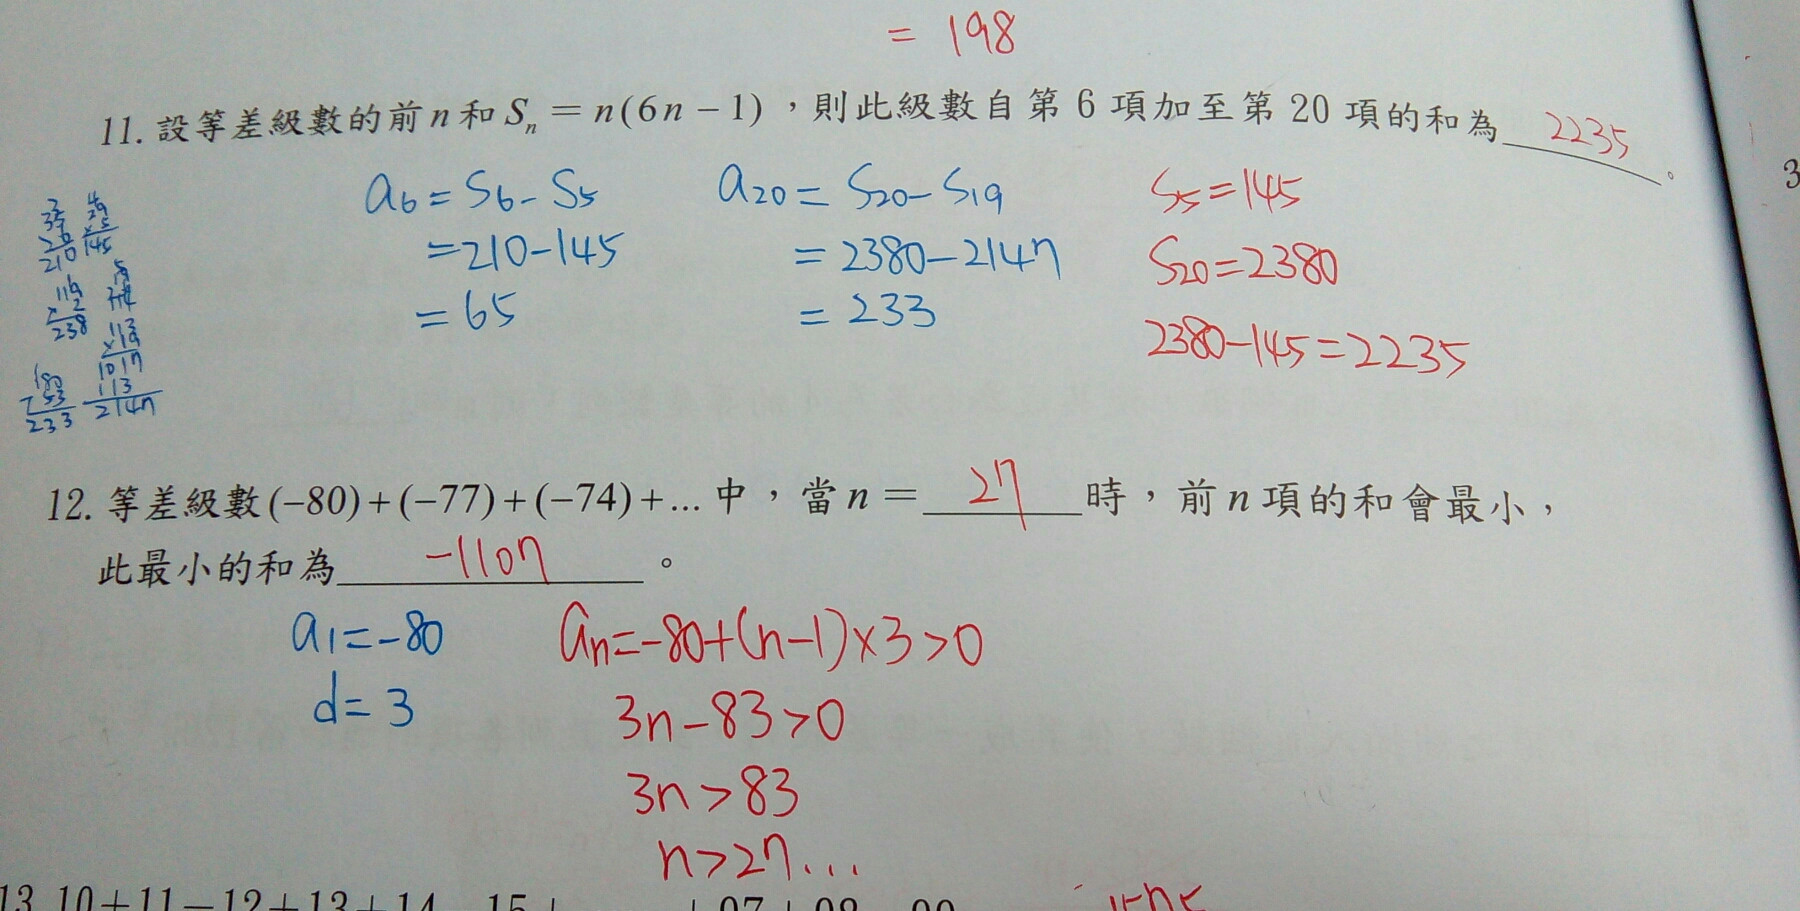 = 198
11. 設等差級數的前 n 和 Sₙ = n(6n − 1)，則此級數自第 6 項加至第 20 項的和為 2235 。
a₆ = S₆ - S₅
= 210 - 145
= 65
a₂₀ = S₂₀ - S₁₉
= 2380 - 2147
= 233
S₅ = 145
S₂₀ = 2380
2380 - 145 = 2235
35
210
29
× 5
145
119
× 2
238
113
× 19
1017
113
2147
233
12. 等差級數 (−80) + (−77) + (−74) + ... 中，當 n = 27 時，前 n 項的和會最小，
此最小的和為 -1107 。
a₁ = -80
d = 3
aₙ = -80 + (n-1) × 3 > 0
3n - 83 > 0
3n > 83
n > 27...
13. 10 + 11 − 12 + 13 + 14